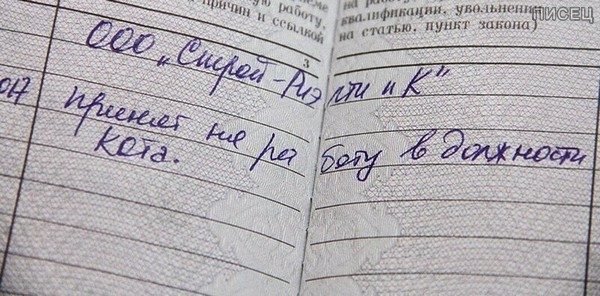 ую работу,
причин и ссылкой
на рабо
квалификации, увольнении
на статью, пункт закона)
ПИСЕЦ
3
ООО „Строй-Риэлти и К"
017 принят на работу в должности
кота.